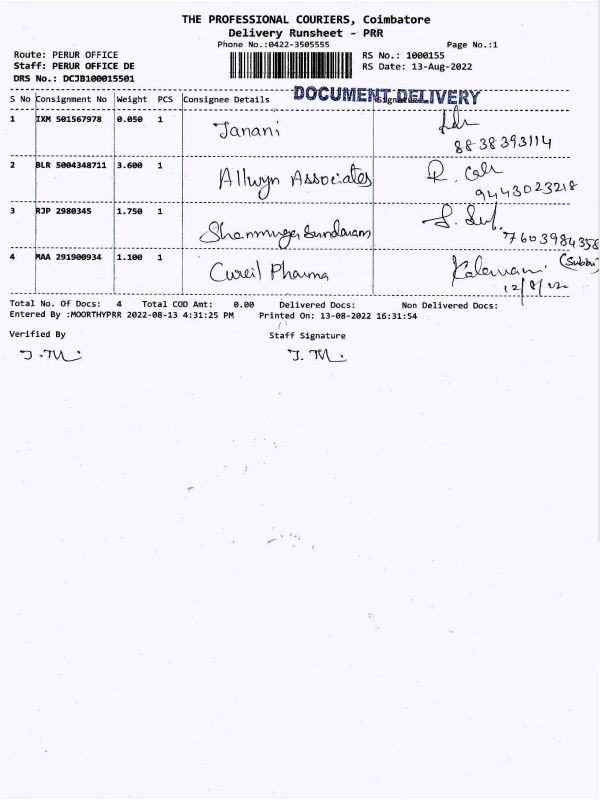 THE PROFESSIONAL COURIERS, Coimbatore
Delivery Runsheet - PRR
Phone No.:0422-3505555 Page No.:1
Route: PERUR OFFICE RS No.: 1000155
Staff: PERUR OFFICE DE RS Date: 13-Aug-2022
DRS No.: DCJB100015501
DOCUMENT DELIVERY
S No Consignment No Weight PCS Consignee Details Signature
1 IXM 501567978 0.050 1 Janani
8838393114
2 BLR 5004348711 3.600 1 Allwyn Associates
9443023218
3 RJP 2980345 1.750 1 Shanmuga Sundaram
7603984358
4 MAA 291900934 1.100 1 Cureil Pharma Kalaivani (Subbu)
12/8/22
Total No. Of Docs: 4 Total COD Amt: 0.00 Delivered Docs: Non Delivered Docs:
Entered By :MOORTHYPRR 2022-08-13 4:31:25 PM Printed On: 13-08-2022 16:31:54
Verified By Staff Signature